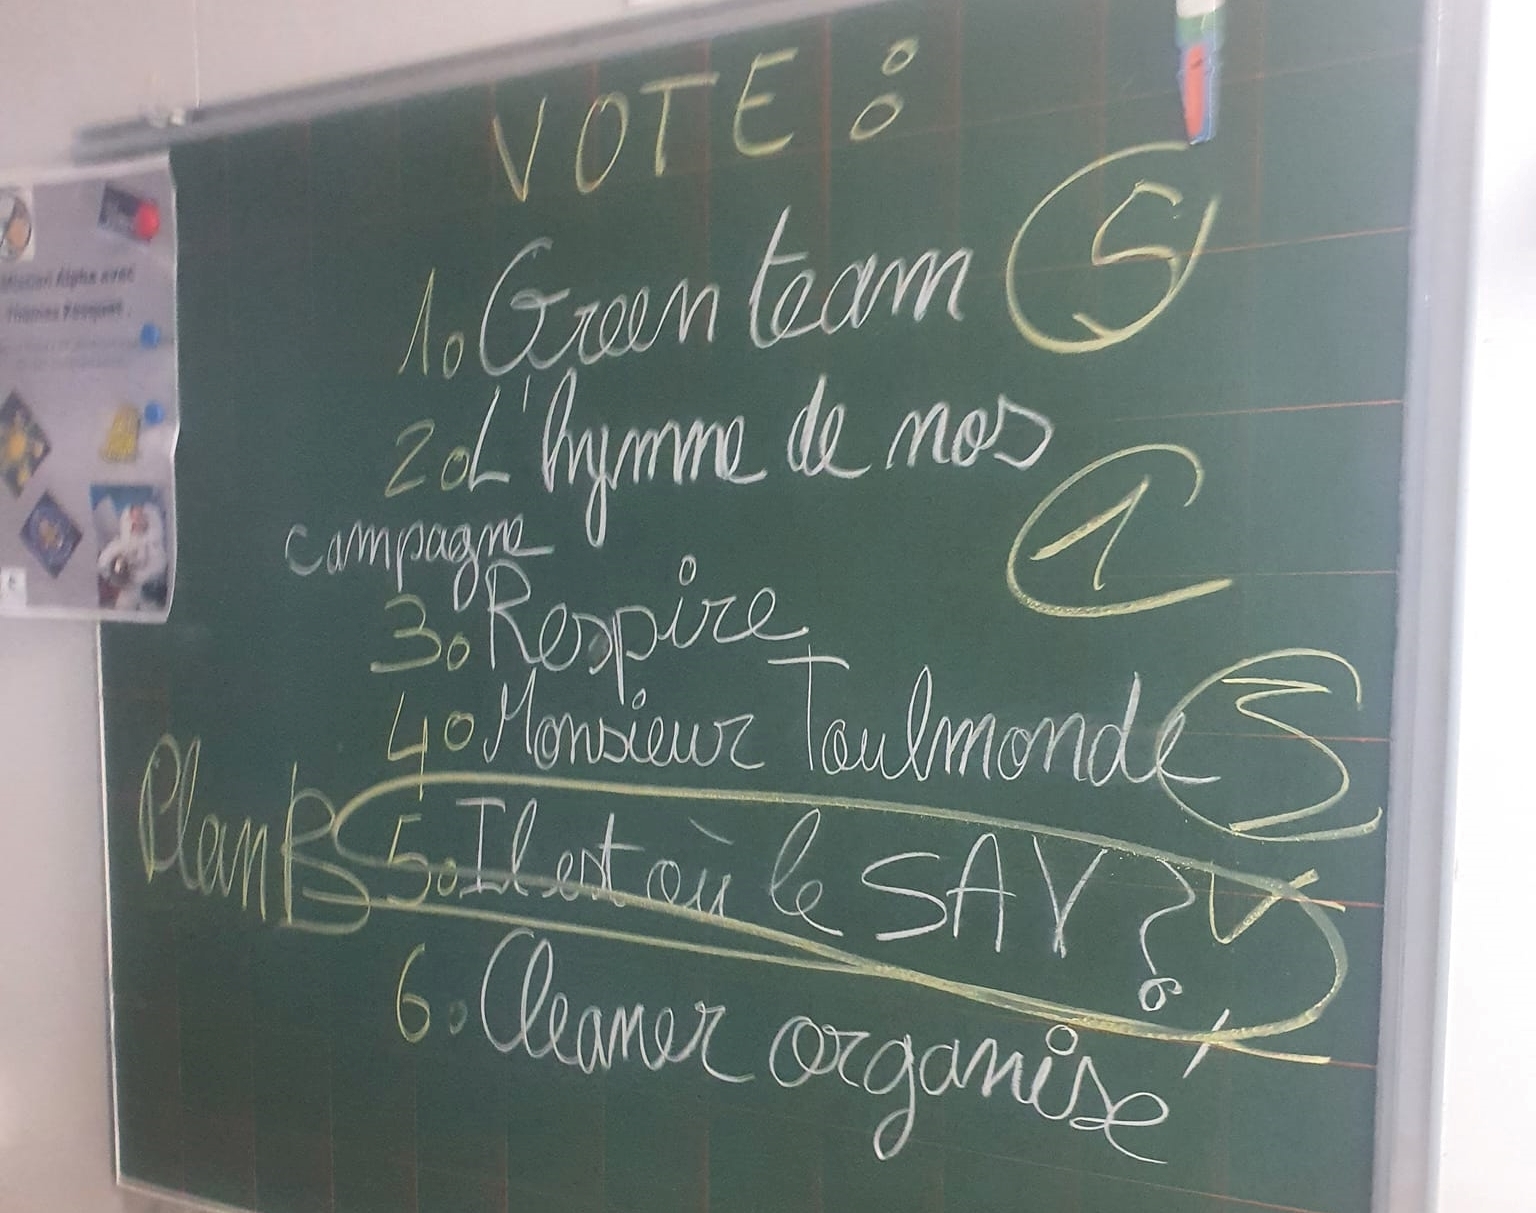 VOTE :
1. Green team 5
2. L'hymne de nos
campagne 1
3. Respire
4. Monsieur Toulmonde 3
Plan B 5. Il est où le SAV ?
6. Cleaner organisé
Mission Alpha avec
Thomas Pesquet.